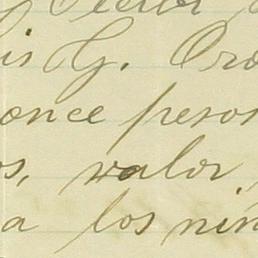 is G. Oro
once pesos
os, valor
a los niñ